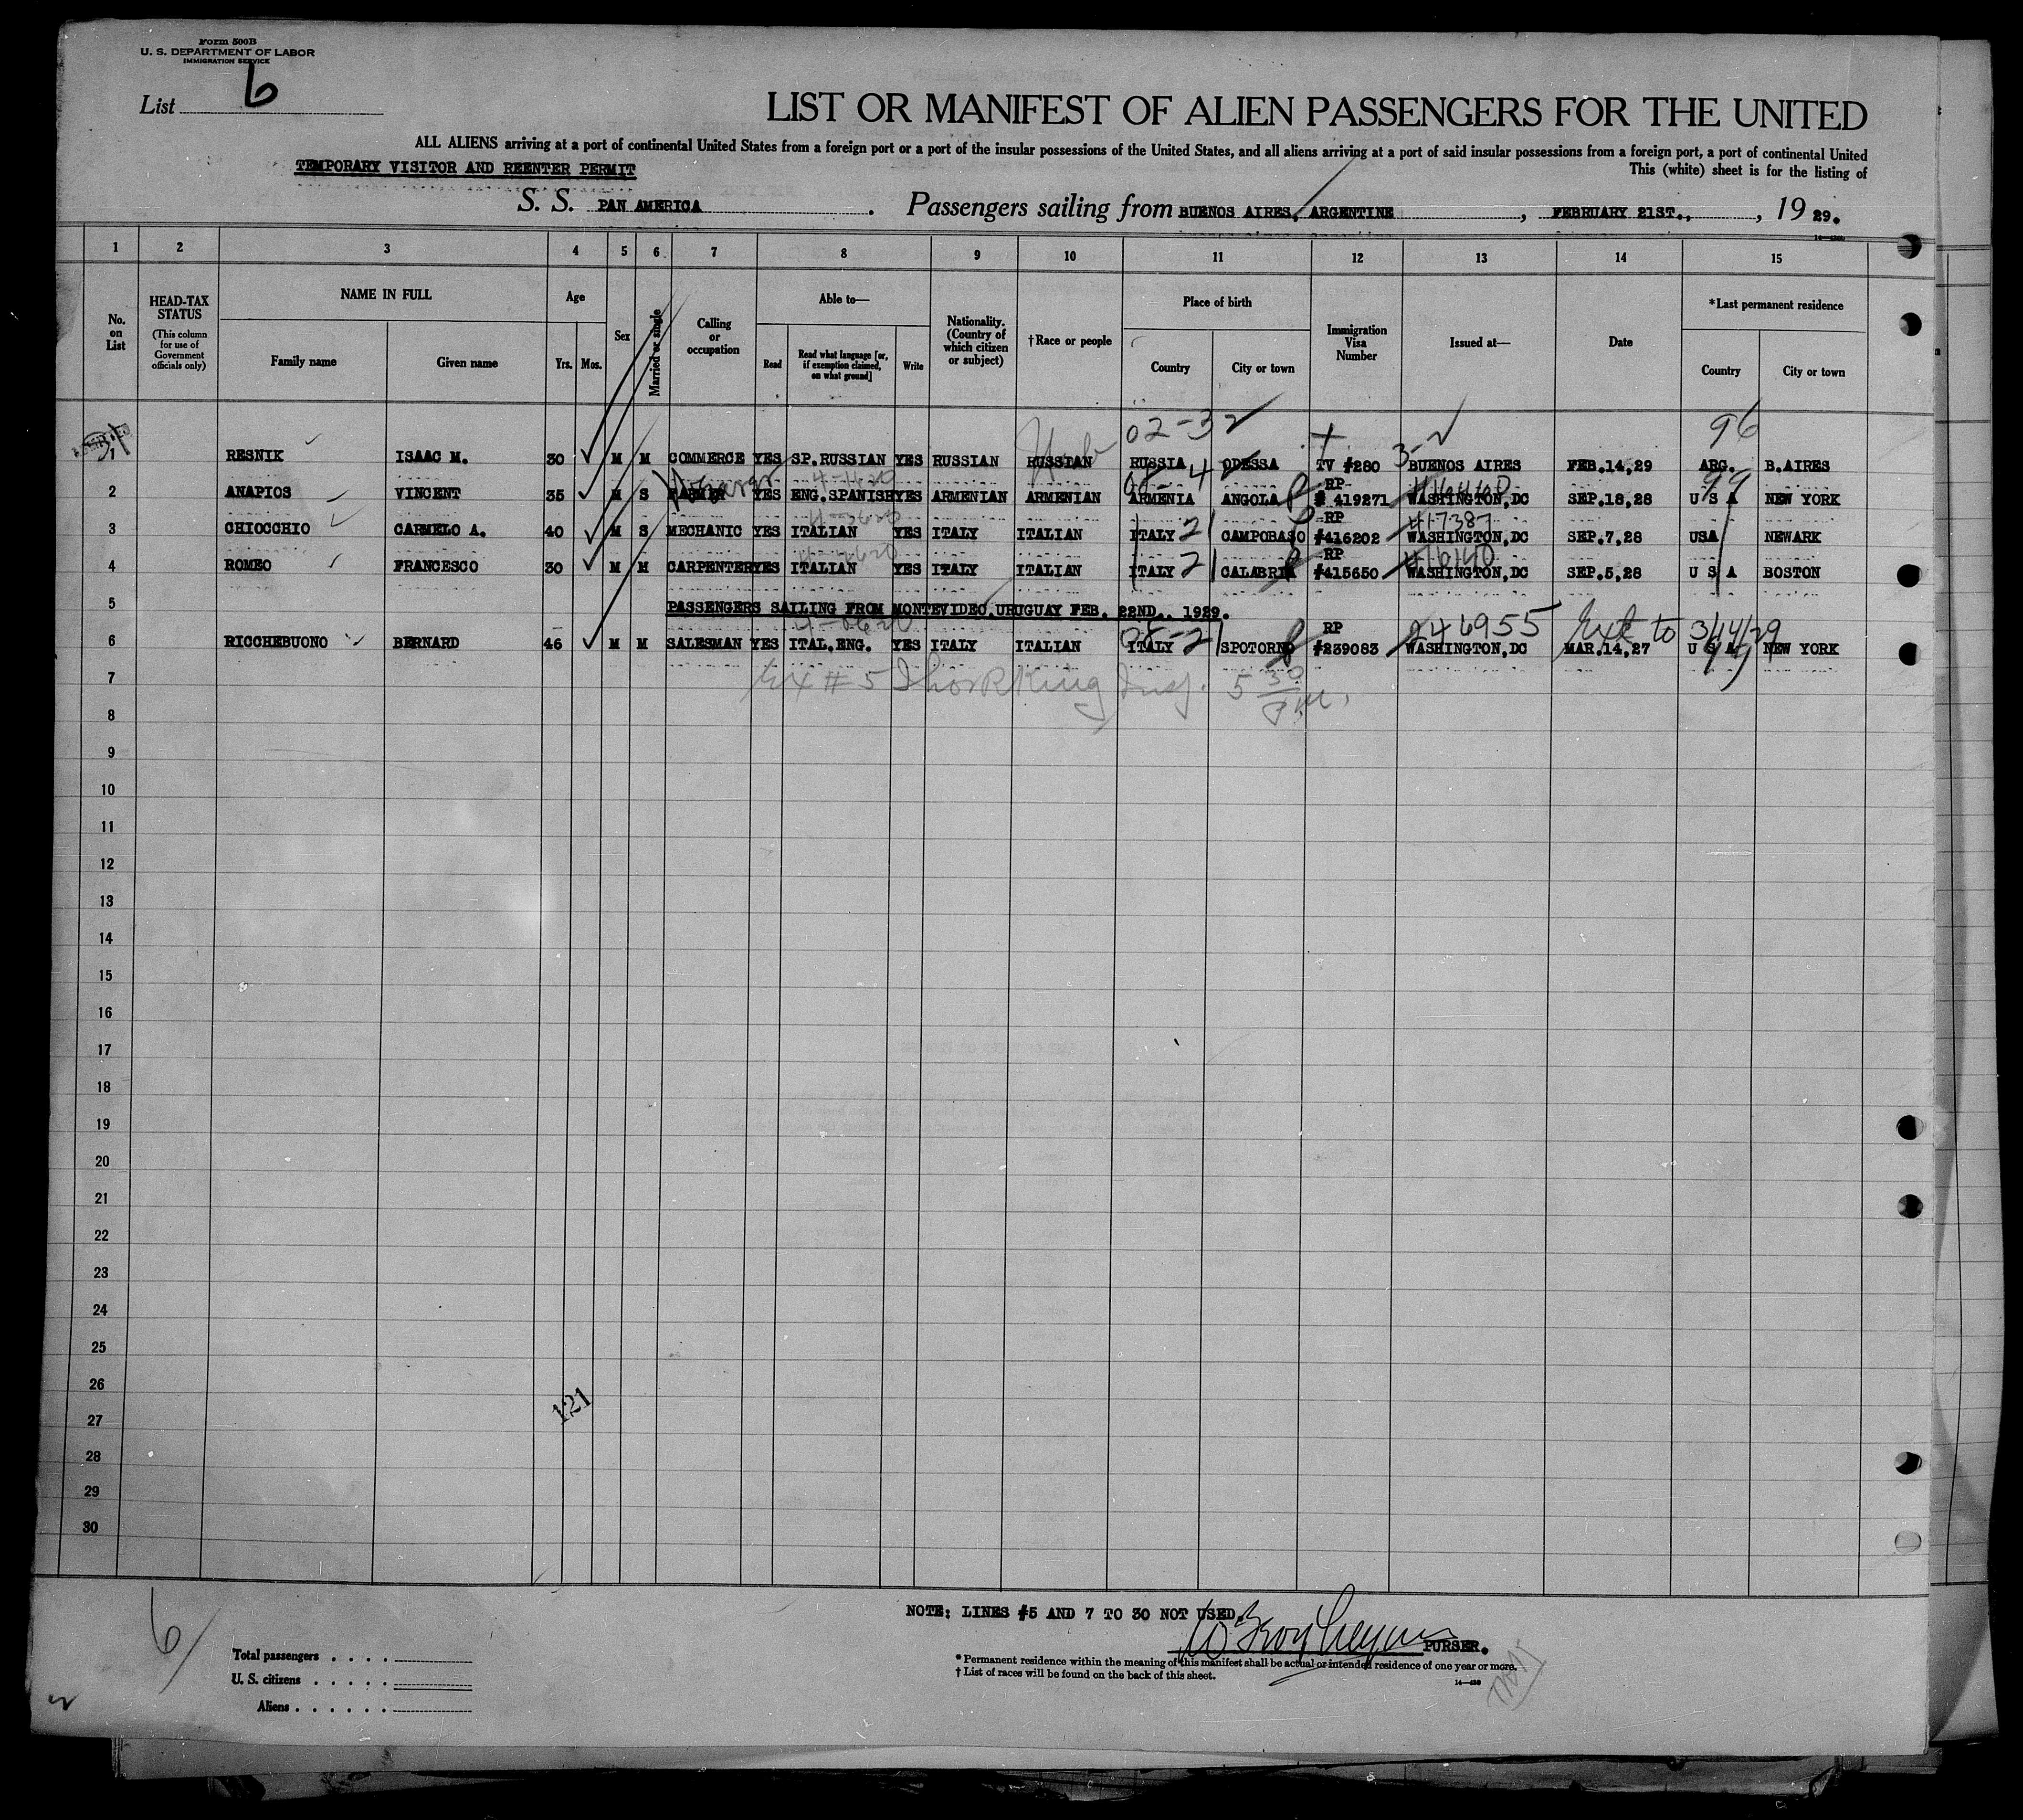 Form 500B
U. S. DEPARTMENT OF LABOR
IMMIGRATION SERVICE
List 6
LIST OR MANIFEST OF ALIEN PASSENGERS FOR THE UNITED
ALL ALIENS arriving at a port of continental United States from a foreign port or a port of the insular possessions of the United States, and all aliens arriving at a port of said insular possessions from a foreign port, a port of continental United
TEMPORARY VISITOR AND REENTER PERMIT
This (white) sheet is for the listing of
S. S. PAN AMERICA. Passengers sailing from BUENOS AIRES, ARGENTINE, FEBRUARY 21ST., 19 29.
1 2 3 4 5 6 7 8 9 10 11 12 13 14 15
No. on List
HEAD-TAX STATUS
(This column for use of Government officials only)
NAME IN FULL
Family name
Given name
Age
Yrs. Mos.
Sex
Married or single
Calling or occupation
Able to—
Read
Read what language [or, if exemption claimed, on what ground]
Write
Nationality. (Country of which citizen or subject)
†Race or people
Place of birth
Country
City or town
Immigration Visa Number
Issued at—
Date
*Last permanent residence
Country
City or town
02-32 3- 96
1 RESNIK ISAAC M. 30 M M COMMERCE YES SP.RUSSIAN YES RUSSIAN RUSSIAN RUSSIA ODESSA TV #280 BUENOS AIRES FEB.14,29 ARG. B.AIRES
RP 99
2 ANAPIOS VINCENT 35 M S YES ENG.SPANISH YES ARMENIAN ARMENIAN ARMENIA ANGOLA # 419271 WASHINGTON,DC SEP.18,28 U S A NEW YORK
RP 417387
3 CHIOCCHIO CARMELO A. 40 M S MECHANIC YES ITALIAN YES ITALY ITALIAN ITALY 21 CAMPOBASO #416202 WASHINGTON,DC SEP.7,28 USA NEWARK
RP
4 ROMEO FRANCESCO 30 M M CARPENTER YES ITALIAN YES ITALY ITALIAN ITALY 21 CALABRIA #415650 WASHINGTON,DC SEP.5,28 U S A BOSTON
5 PASSENGERS SAILING FROM MONTEVIDEO.URUGUAY FEB. 22ND.. 1929.
RP 246955 Ext to 3/14/29
6 RICCHEBUONO BERNARD 46 M M SALESMAN YES ITAL.ENG. YES ITALY ITALIAN ITALY SPOTORNO #239083 WASHINGTON,DC MAR.14,27 U S A NEW YORK
7
8
9
10
11
12
13
14
15
16
17
18
19
20
21
22
23
24
25
26
121
27
28
29
30
NOTE: LINES #5 AND 7 TO 30 NOT USED.
6
PURSER.
Total passengers
U. S. citizens
Aliens
* Permanent residence within the meaning of this manifest shall be actual or intended residence of one year or more.
† List of races will be found on the back of this sheet.